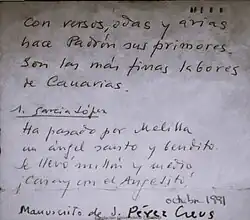 Con versos, odas y arias
hace Padrón sus primores.
Son las más finas labores
de Canarias.
1. García López
Ha pasado por Melilla
un ángel santo y bendito.
Se llevó millón y medio
¡Caray con el Angelito!
octubre 1991
Manuscrito de J. Pérez Creus